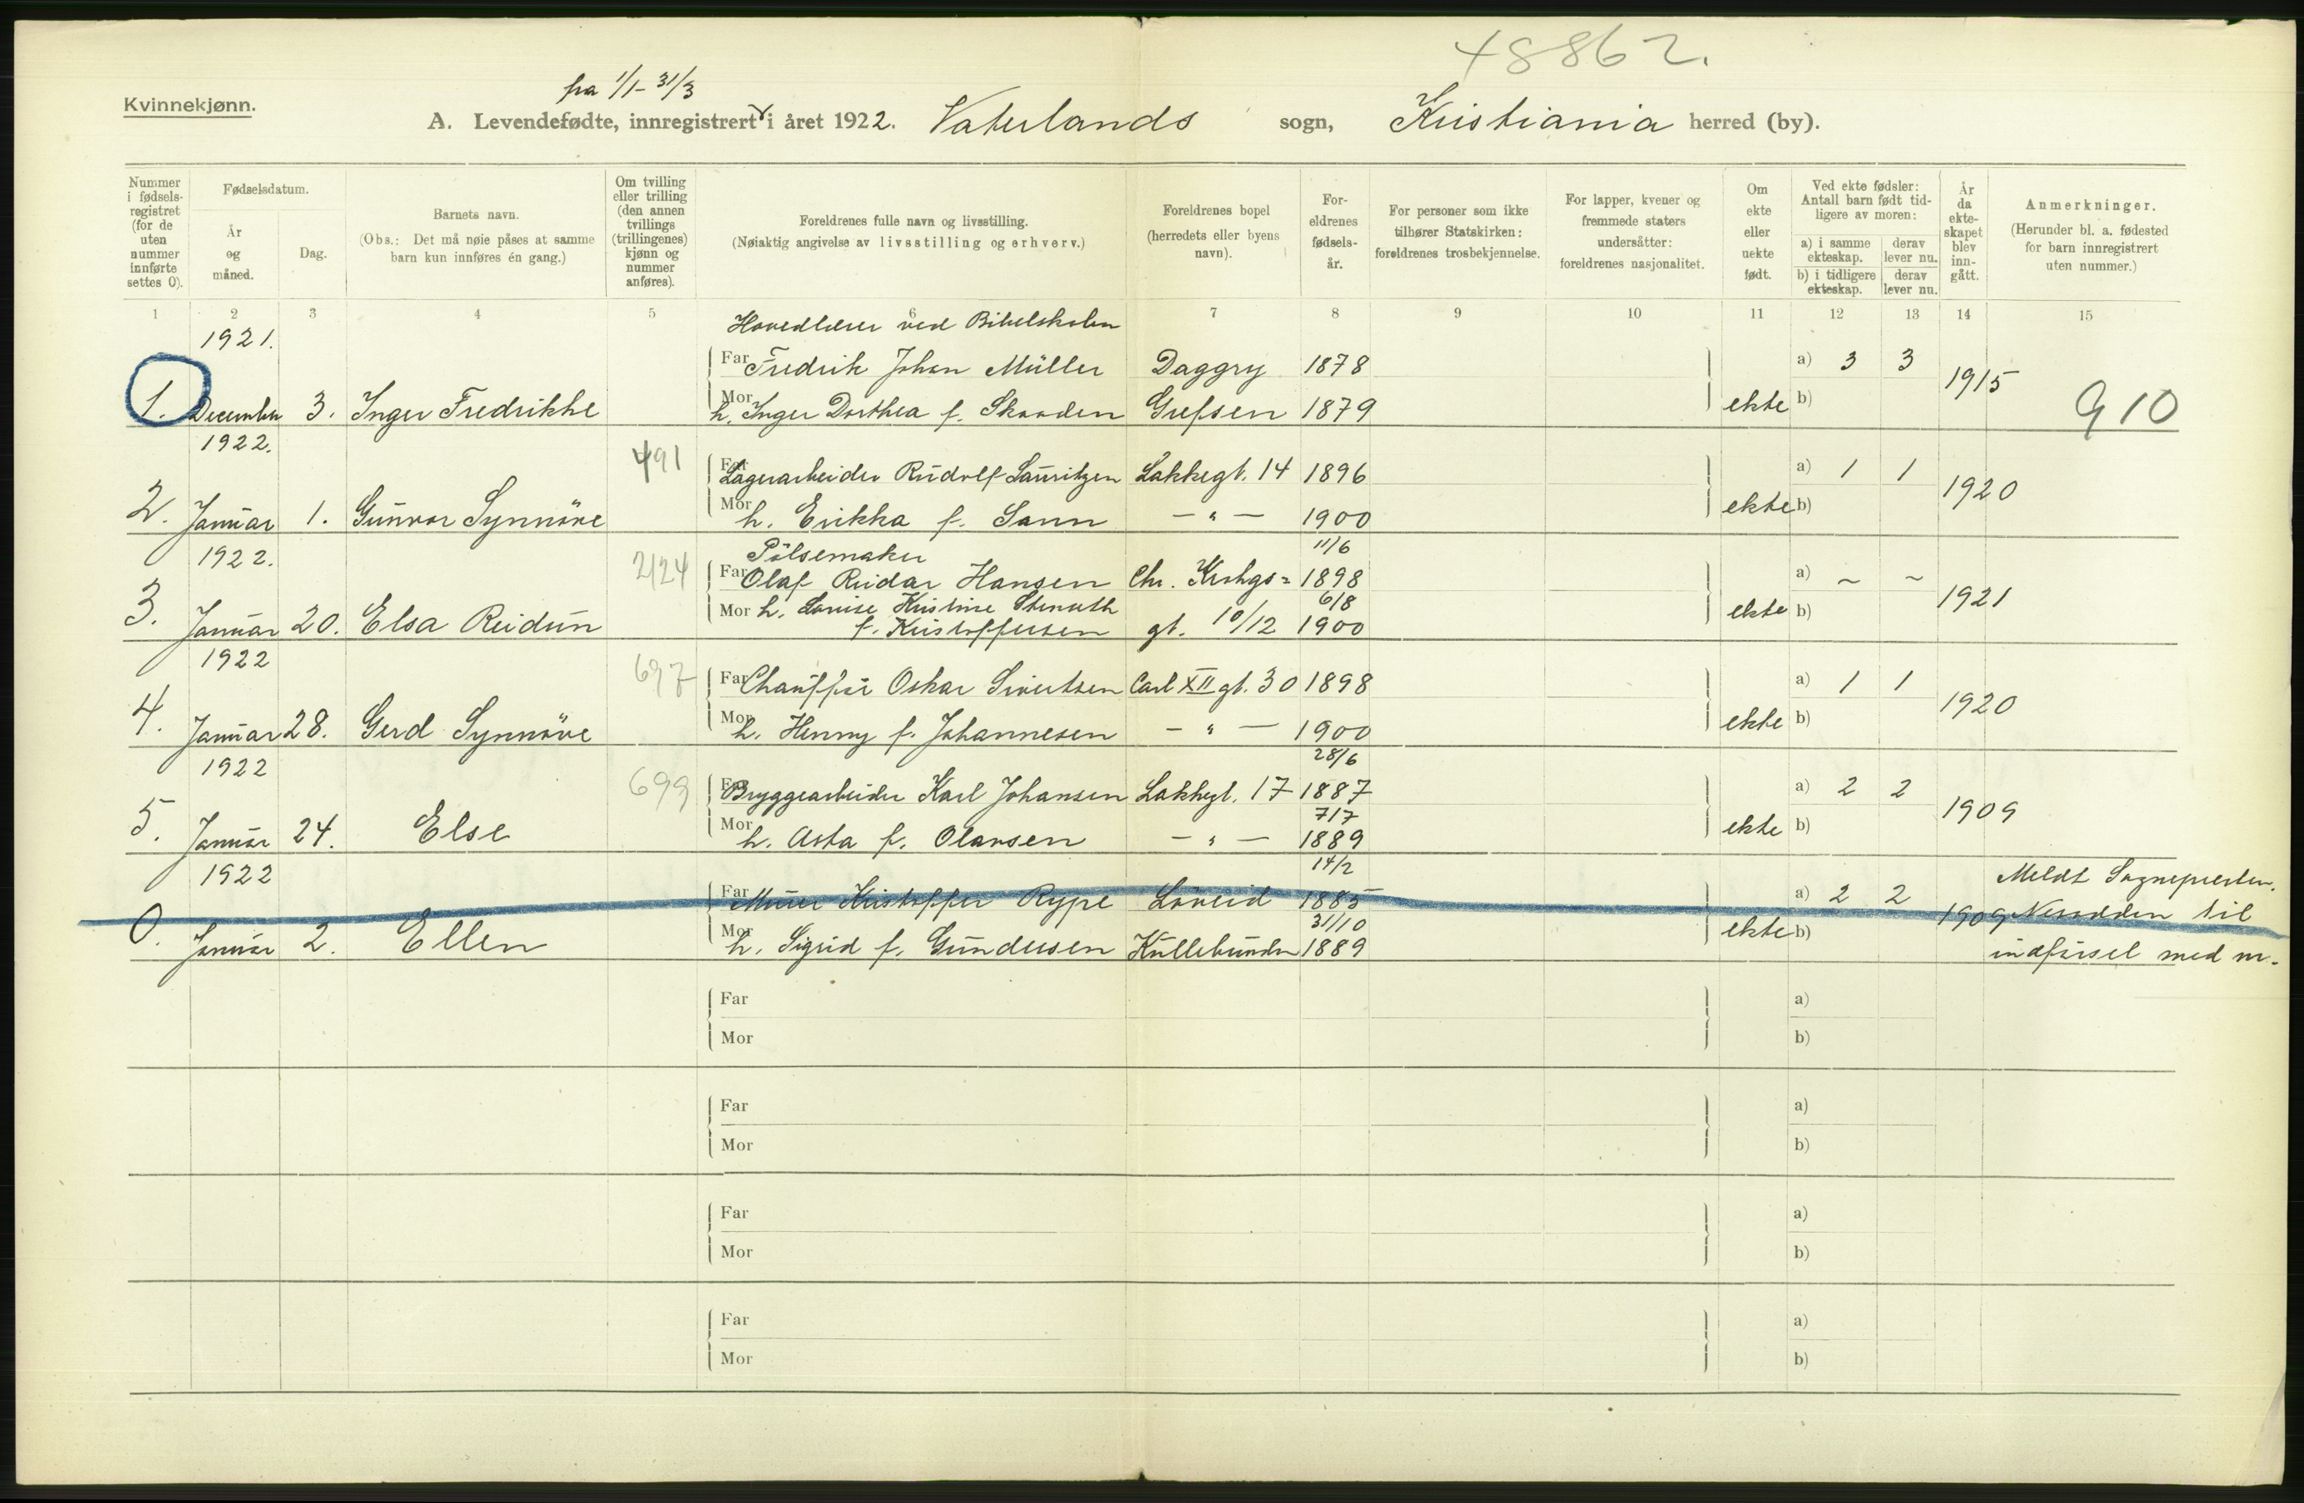 48862.
Kvinnekjønn.
fra 1/1 - 31/3
A. Levendefødte, innregistrert i året 1922. Vaterlands sogn, Kristiania herred (by).
Nummer i fødselsregistret (for de uten nummer innførte settes 0).
Fødselsdatum.
År og måned.
Dag.
Barnets navn.
(Obs.: Det må nøie påses at samme barn kun innføres én gang.)
Om tvilling eller trilling (den annen tvillings (trillingenes) kjønn og nummer anføres).
Foreldrenes fulle navn og livsstilling.
(Nøiaktig angivelse av livsstilling og erhverv.)
Foreldrenes bopel (herredets eller byens navn).
Foreldrenes fødselsår.
For personer som ikke tilhører Statskirken: foreldrenes trosbekjennelse.
For lapper, kvener og fremmede staters undersåtter: foreldrenes nasjonalitet.
Om ekte eller uekte født.
Ved ekte fødsler: Antall barn født tidligere av moren:
a) i samme ekteskap. derav lever nu.
b) i tidligere ekteskap. derav lever nu.
År da ekteskapet blev inngått.
Anmerkninger.
(Herunder bl. a. fødested for barn innregistrert uten nummer.)
1 2 3 4 5 6 7 8 9 10 11 12 13 14 15
1921. Hovedlærer ved Bibelskolen
Far Fredrik Johan Müller Daggry 1878 a) 3 3 1915
1. December 3. Inger Fredrikke Mor h. Inger Dorthea f. Skaaden Grefsen 1879 ekte b) 910
1922. 491 Far Lagerarbeider Rudolf Lauritzen Lakkegt. 14 1896 a) 1 1 1920
2. Januar 1. Gunvor Synnöve Mor h. Erikka f. Sann — " — 1900 ekte b)
1922. Pölsemaker 11/6
2124 Far Olaf Reidar Hansen Chr. Krohgs= 1898 a) ~ ~ 1921
3. Januar 20. Elsa Reidun Mor h. Louise Kristine 6/8 ekte b)
f. Kristoffersen gt. 10/12 1900
1922 697 Far Chauffür Oskar Sivertsen Carl XII gt. 30 1898 a) 1 1 1920
4. Januar 28. Gerd Synnöve Mor h. Henny f. Johannesen — " — 1900 ekte b)
1922 28/6
699 Far Bryggearbeider Karl Johansen Lakkegt. 17 1887 a) 2 2 1909
7/7
5. Januar 24. Else Mor h. Asta f. Olavsen — " — 1889 ekte b)
1922 14/2 Meldt Sognepresten.
Far Murer Kristoffer Rype Löveid 1885 a) 2 2 1909 Nesodden til
31/10
0. Januar 2. Ellen Mor h. Sigrid f. Gundersen Kullebunden 1889 ekte b) indförsel med nr.
Far a)
Mor b)
Far a)
Mor b)
Far a)
Mor b)
Far a)
Mor b)